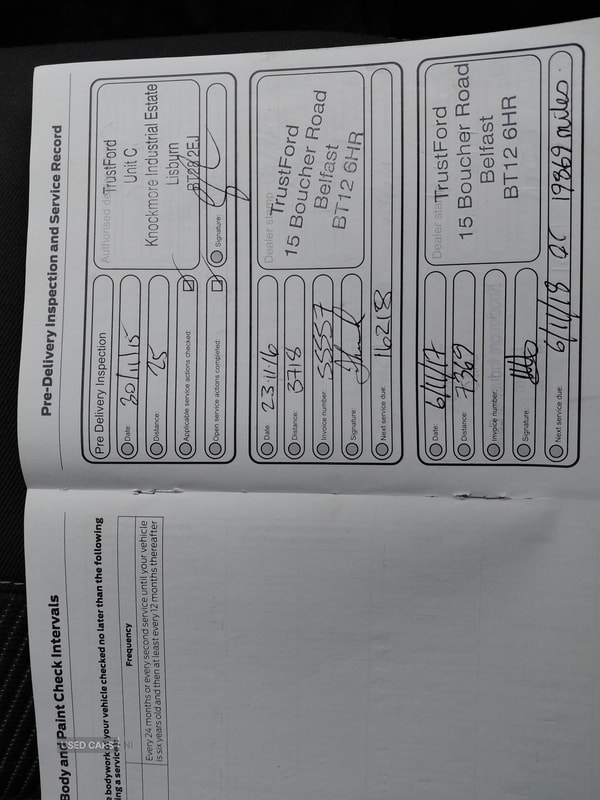 Body and Paint Check Intervals
bodywork of your vehicle checked no later than the following
ing a service):
Frequency
Every 24 months or every second service until your vehicle
is six years old and then at least every 12 months thereafter
USED CARS NI
Pre-Delivery Inspection and Service Record
Pre Delivery Inspection
Date: 30/11/15
Distance: 25
Applicable service actions checked:
Open service actions completed:
Authorised
TrustFord
Unit C
Knockmore Industrial Estate
Lisburn
BT28 2EJ
Signature:
Date: 23.11.16
Distance: 3718
Invoice number: 55557
Signature:
Next service due: 16218
Dealer stamp
TrustFord
15 Boucher Road
Belfast
BT12 6HR
Date: 6/11/17
Distance: 7369
Invoice number:
Signature:
Next service due: 6/11/18 or 19869 miles.
Dealer
TrustFord
15 Boucher Road
Belfast
BT12 6HR